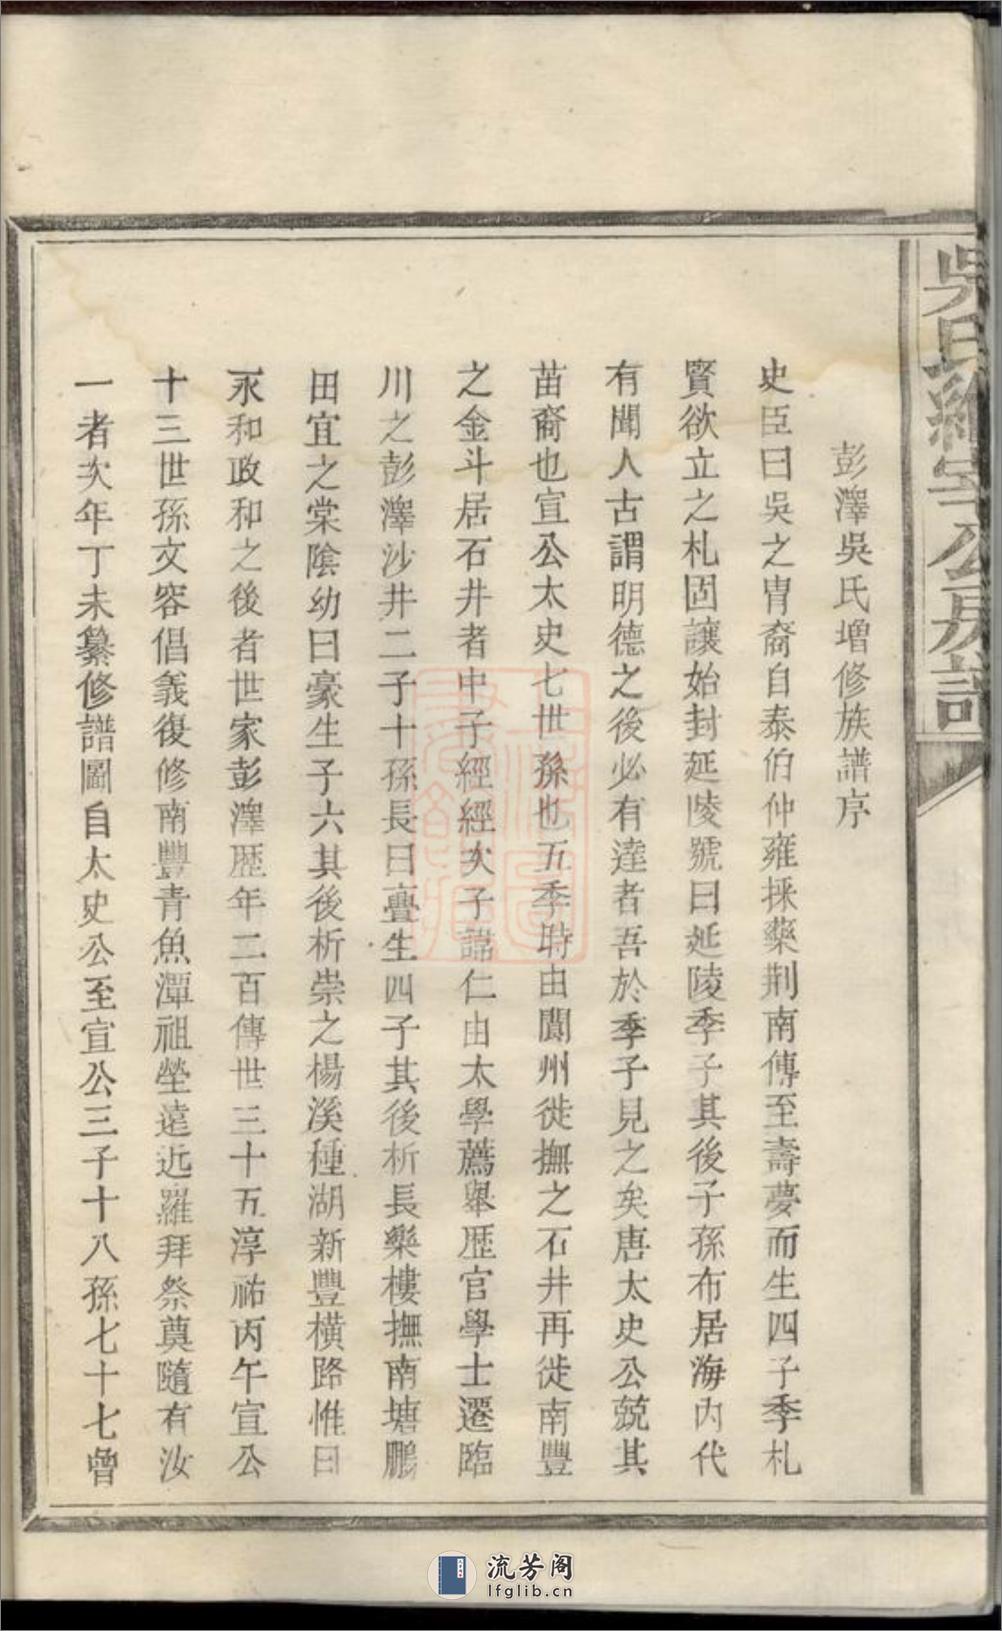 彭澤吳氏增修族譜序
史臣曰吳之胄裔自泰伯仲雍採藥荆南傳至壽夢而生四子季札
賢欲立之札固讓始封延陵號曰延陵季子其後子孫布居海內代
有聞人古謂明德之後必有達者吾於季子見之矣唐太史公兢其
苗裔也宣公太史七世孫也五季時由閬州徙撫之石井再徙南豐
之金斗居石井者中子經經次子諱仁由太學薦舉歷官學士遷臨
川之彭澤沙井二子十孫長曰亹生四子其後析長樂樓撫南塘鵬
田宜之棠陰幼曰豪生子六其後析崇之楊溪種湖新豐橫路惟曰
永和政和之後者世家彭澤歷年二百傳世三十五淳祐丙午宣公
十三世孫文容倡義復修南豐青魚潭祖塋遠近羅拜祭奠隨有汝
一者次年丁未纂修譜圖自太史公至宣公三子十八孫七十七曾
吳氏經宇公房譜
流芳阁
lfglib.cn